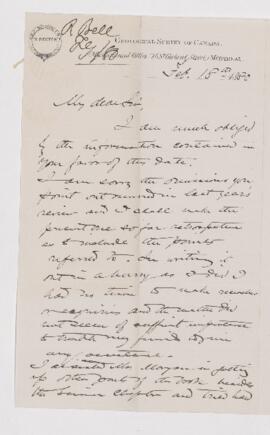 R. Bell
Geological Survey of Canada,
Montreal,
Feb. 15th 1880
My dear Sir,
I am much obliged
by the information contained in
your favor of this date.
I am sorry the omissions you
point out occurred in last year's
review and I shall make the
present one so far retrospective
as to include the points
referred to. In writing it
out in a hurry, as I did I
had no time to make
and the matter did
not seem of sufficient importance
to trouble my friends to give
any assistance.
I assisted Mr. Morgan in getting
up other parts of the book besides
the Science Chapter and